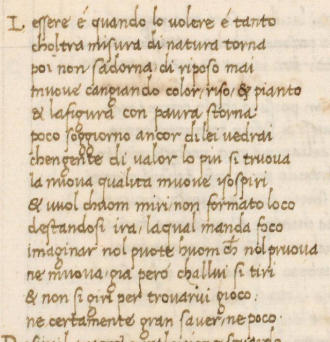 L essere é quando lo volere é tanto
choltra misura di natura torna
poi non sadorna di riposo mai
muove cangiando color, riso, & pianto
& lafigura con paura storna
poco soggiorno ancor di lei vedrai
chengente di valor lo piu si truova
la nuova qualita muove isospiri
& vuol chaom miri non formato loco
destandosi ira, laqual manda foco
imaginar nol puote huom ch nol pruova
ne muova gia pero challui si tiri
& non si giri per trovarui gioco.
ne certamente gran saver, ne poco.